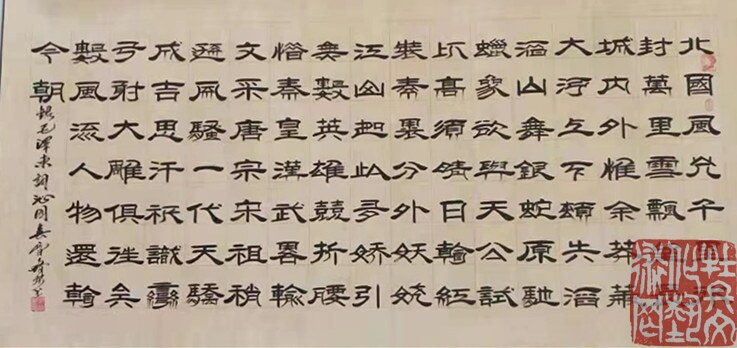 北國風光千
封萬里雪飄
城内外惟余莽
大河上下頓失滔
滔山舞銀蛇原馳
蠟象欲與天公試
比高須晴日看紅
装素裹分外妖娆
江山如此多嬌引
無數英雄競折腰
惜秦皇漢武略輸
文采唐宗宋祖稍
遜風騷一代天驕
成吉思汗祇識彎
弓射大雕俱往矣
數風流人物還看
今朝
録毛澤東詞沁園春雪